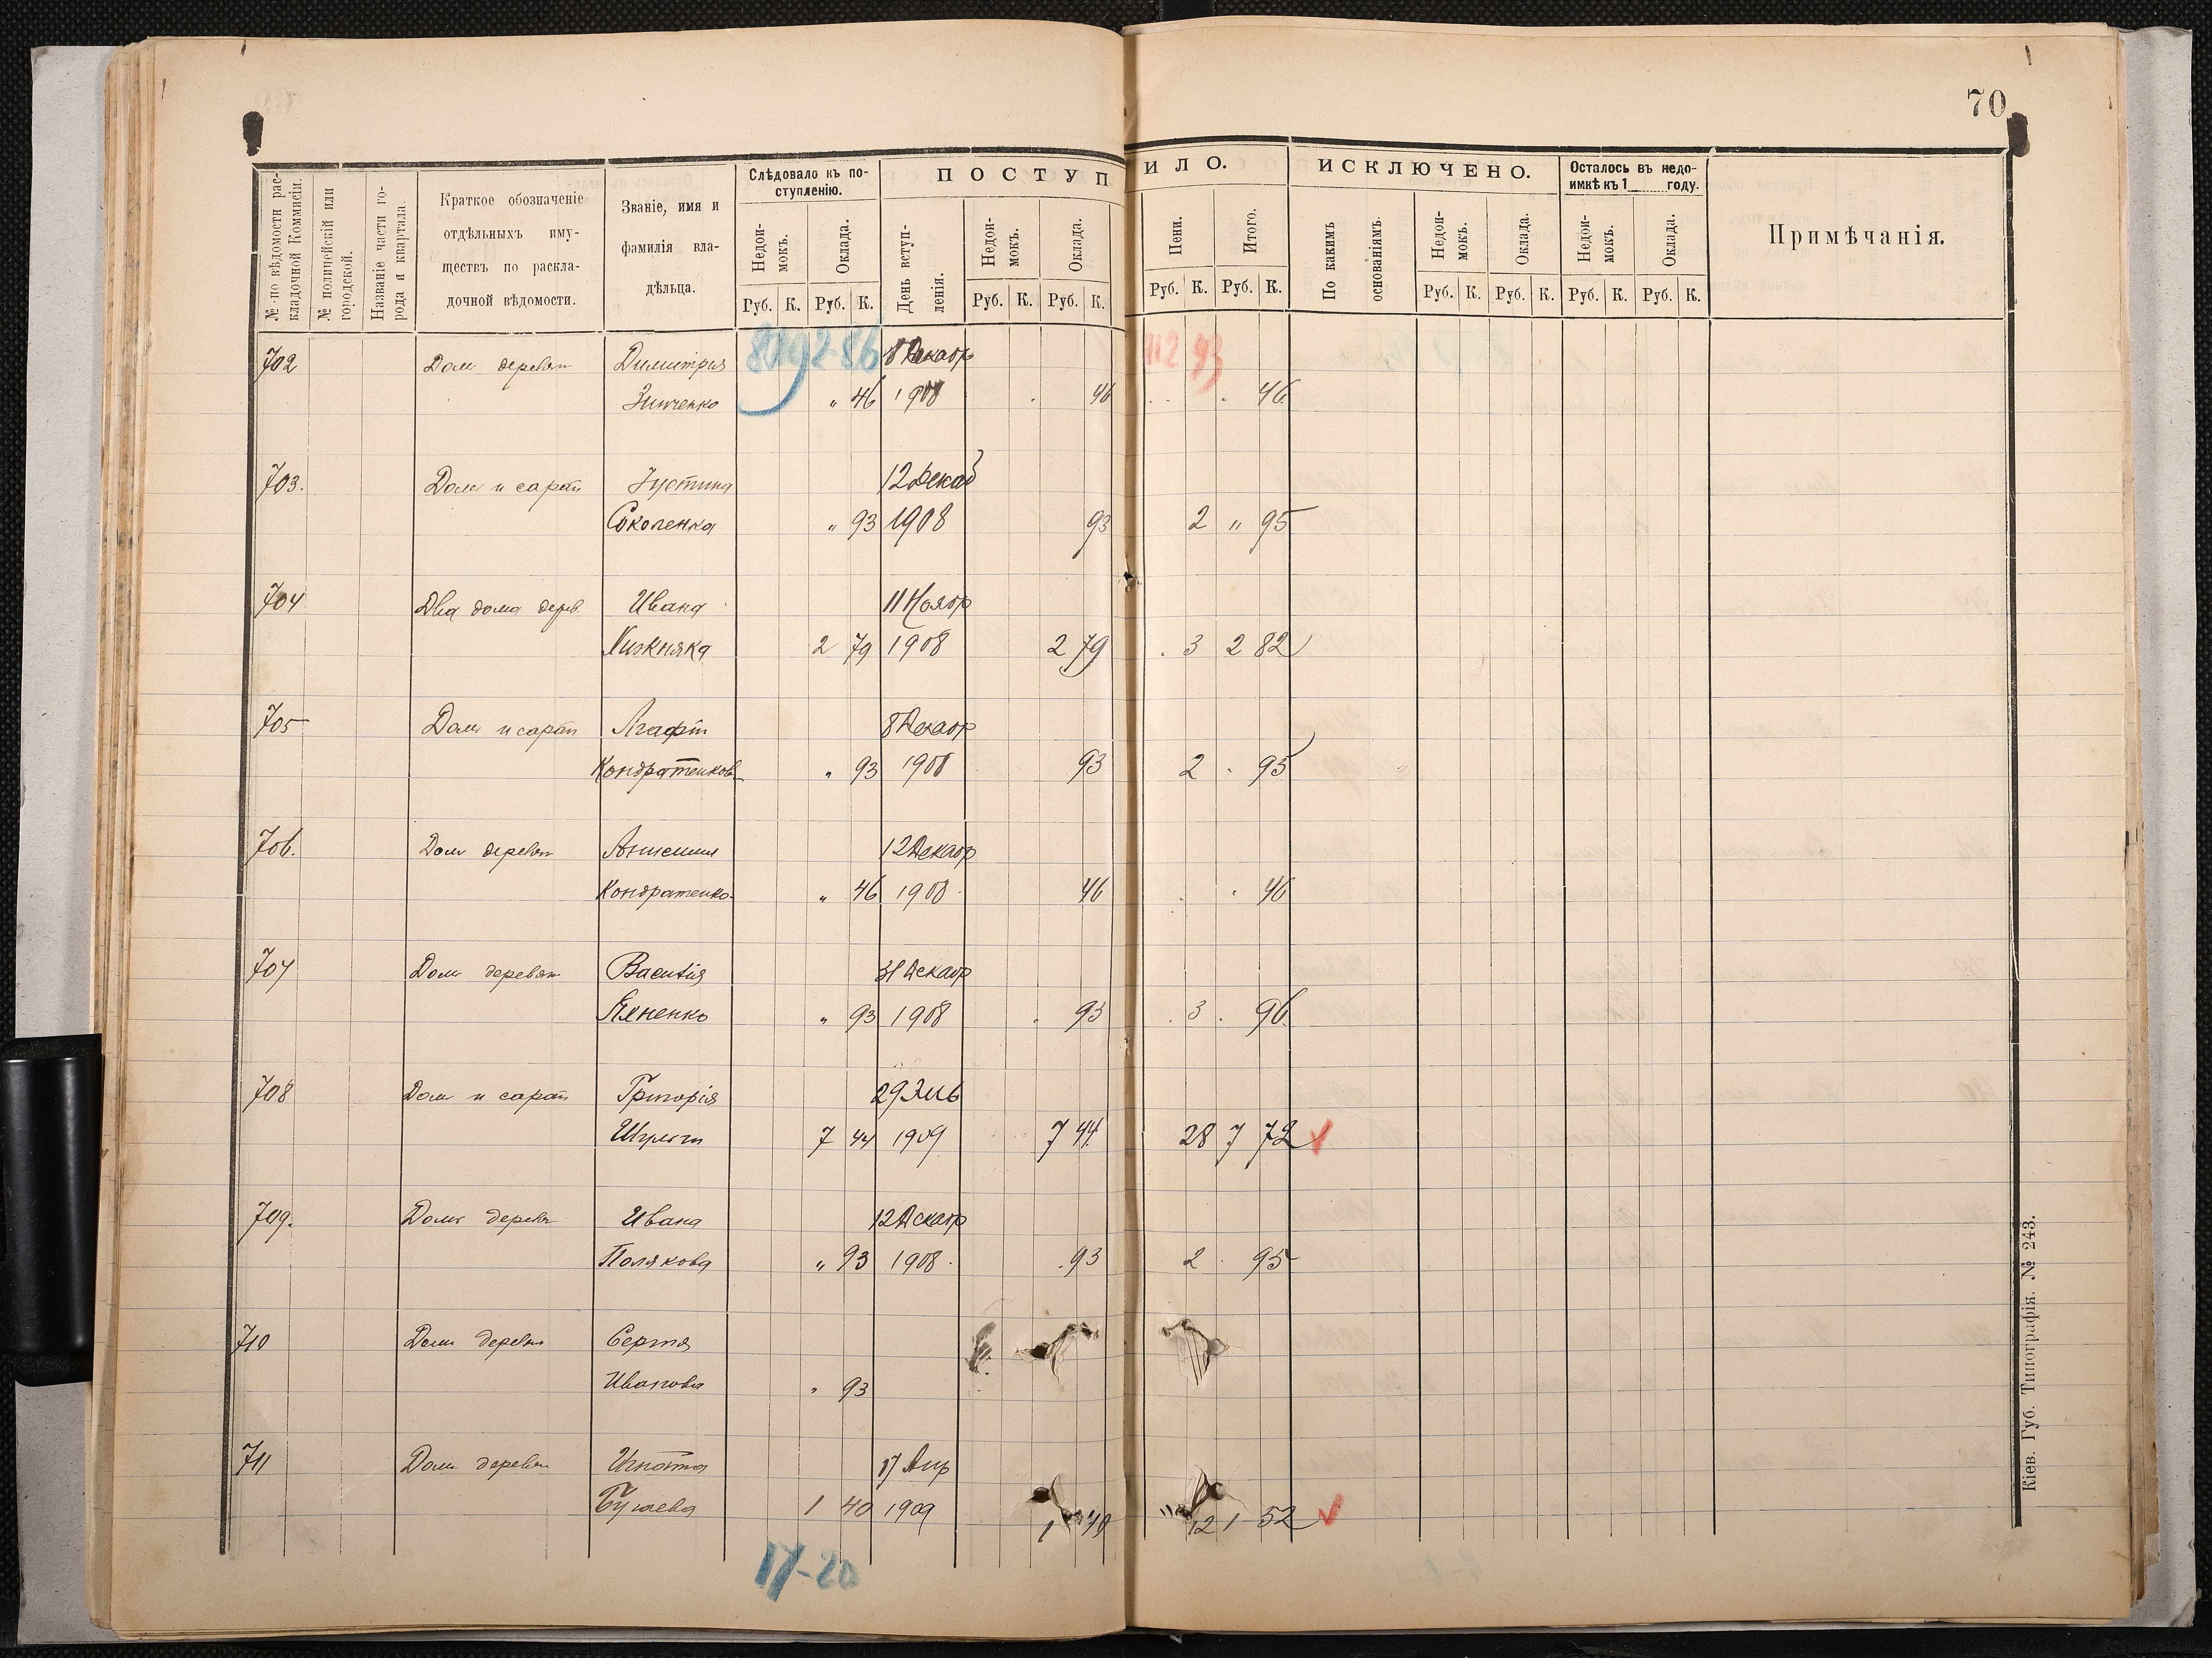 70
№ по вѣдомости рас-
кладочной Коммисіи.
№ полицейскій или
городской.
Названіе части го-
рода и квартала.
Краткое обозначеніе
отдѣльныхъ иму-
ществъ по раскла-
дочной вѣдомости.
Званіе, имя и
фамилія вла-
дѣльца.
Слѣдовало къ по-
ступленію.
Недои-
мокъ.
Оклада.
Руб. К. Руб. К.
ПОСТУП
День вступ-
ленія.
Недои-
мокъ.
Оклада.
Руб. К. Руб. К.
ИЛО.
Пени.
Итого.
Руб. К. Руб. К.
ИСКЛЮЧЕНО.
По какимъ
основаніямъ.
Недои-
мокъ.
Оклада.
Руб. К. Руб. К.
Осталось въ недо-
имкѣ къ 1 году.
Недои-
мокъ.
Оклада.
Руб. К. Руб. К.
Примѣчанія.
702 Дом деревян Димитрія 8 Декабр
Зинченко " 46 1908 46 46
703. Дом и сарай Іустина 12 Декаб
Соколенка " 93 1908 93 2 " 95
704 Два дома дерев. Ивана 11 Ноябр
2 79 1908 2 79 3 2 82
705 Дом и сарай 8 Декабр
Кондратенков " 93 1908 93 2 95
706. Дом деревян 12 Декабр
Кондратенко " 46 1908 46 46
707 Дом деревян Василія 31 Декабр
" 93 1908 93 3 96
708 Дом и сарай Григорія 29 Янв
7 44 1909 7 44 28 7 72
709. Дом деревя Ивана 12 Декабр
Полякова " 93 1908 93 2 95
710 Дом деревян Сергія
Иванова " 93
711 Дом деревян Игната 17 Апр
1 40 1909 1 40 12 1 52
17-20
Кіев. Губ. Типографія. № 243.